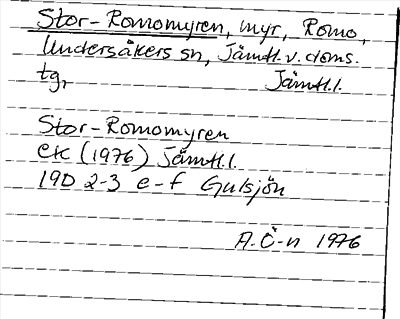 Stor-Romomyren, myr, Romo,
Undersåkers sn, Jämtl. v. doms.
tg, Jämtl.l.
Stor-Romomyren
ek (1976) Jämtl.l.
19D 2-3 e-f Gulsjön
A.Ö-n 1976